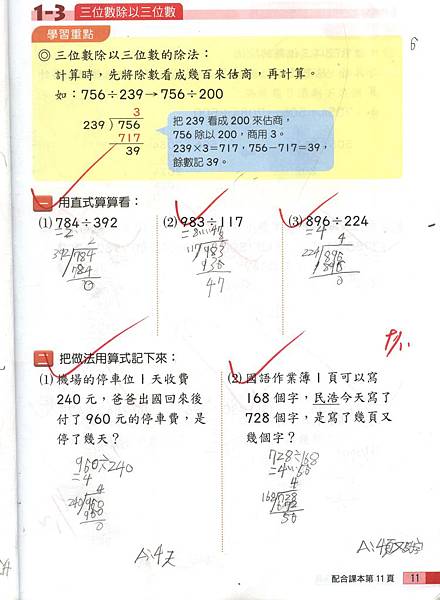 1-3 三位數除以三位數
學習重點
6
◎ 三位數除以三位數的除法：
計算時，先將除數看成幾百來估商，再計算。
如：756÷239→756÷200
3
239 ) 756
717
39
把 239 看成 200 來估商，
756 除以 200，商用 3。
239×3=717，756-717=39，
餘數記 39。
一 用直式算算看：
(1) 784÷392
=2
2
392 784
784
0
(2) 983÷117
117 983
936
47
(3) 896÷224
=4
4
224 896
896
0
二 把做法用算式記下來：
(1) 機場的停車位 1 天收費
240 元，爸爸出國回來後
付了 960 元的停車費，是
停了幾天？
960÷240
=4
4
240 960
960
0
A:4天
(2) 國語作業簿 1 頁可以寫
168 個字，民浩今天寫了
728 個字，是寫了幾頁又
幾個字？
728÷168
=4…56
4
168 728
672
56
配合課本第 11 頁 11